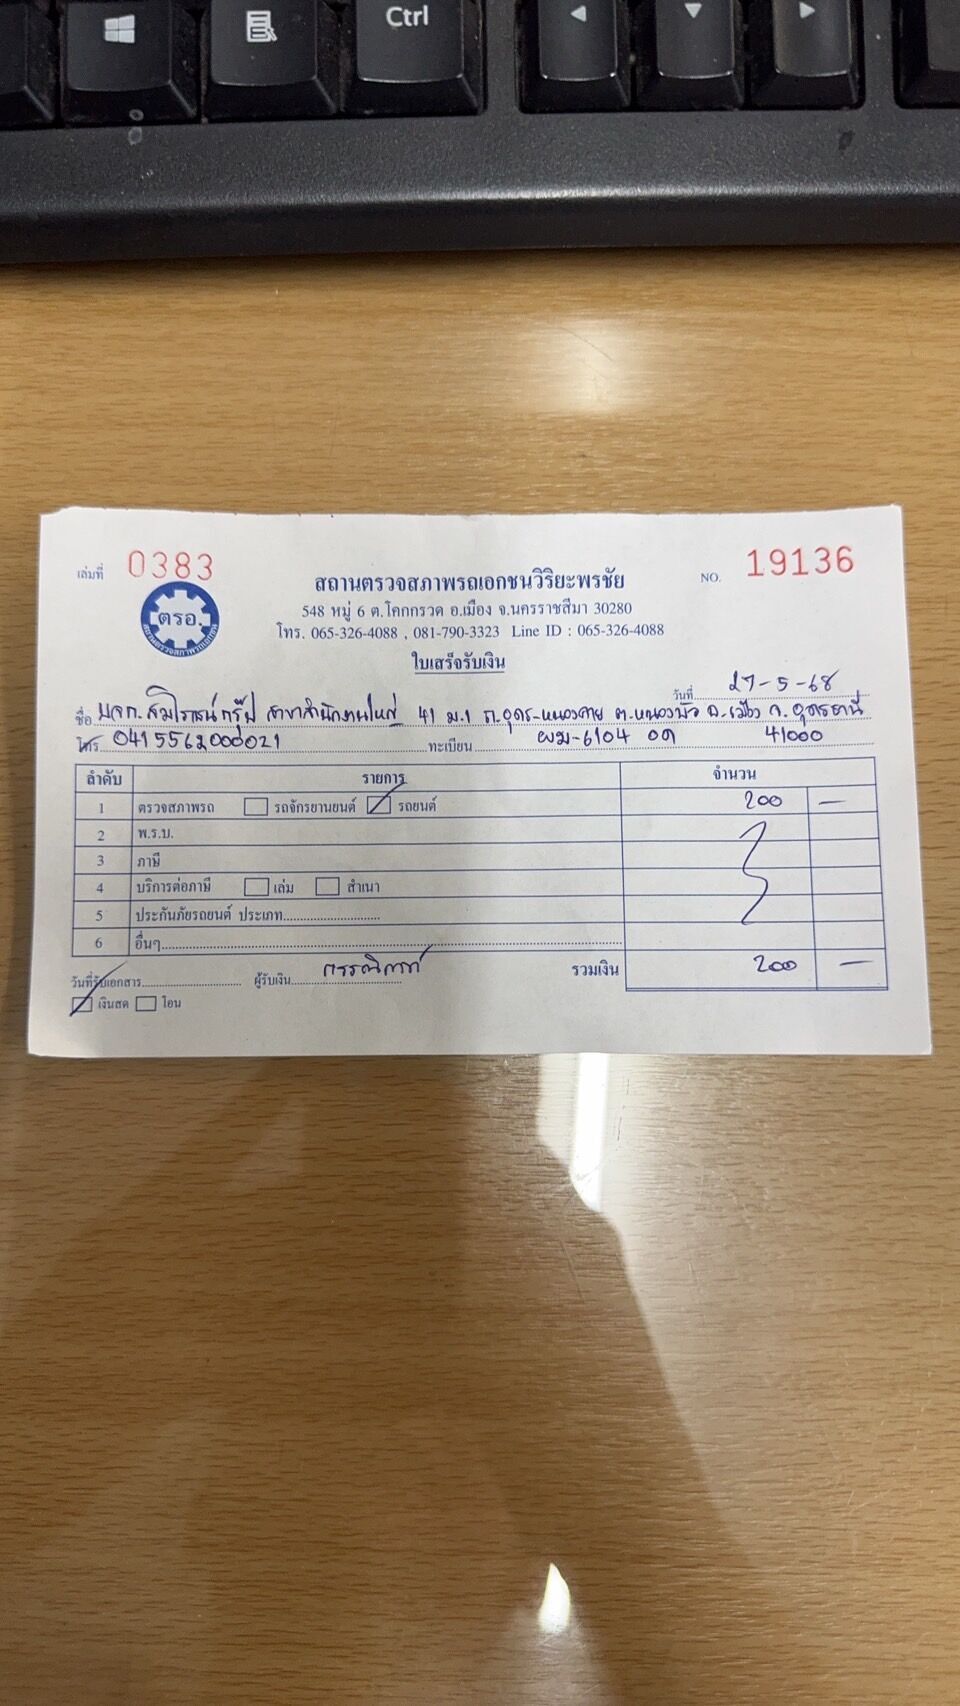 Ctrl
เล่มที่ 0383
NO. 19136
ตรอ.
สถานตรวจสภาพรถเอกชน
สถานตรวจสภาพรถเอกชนวิริยะพรชัย
548 หมู่ 6 ต.โคกกรวด อ.เมือง จ.นครราชสีมา 30280
โทร. 065-326-4088 , 081-790-3323 Line ID : 065-326-4088
ใบเสร็จรับเงิน
วันที่ 27-5-68
ชื่อ บจก. กรุ๊ป สาขาสำนักงานใหญ่ 41 ม.1 ถ.อุดร-หนองคาย ต.หนองบัว อ.เมือง จ.อุดรธานี
โทร 0415562000021 ทะเบียน ผม-6104 อด 41000
ลำดับ รายการ จำนวน
1 ตรวจสภาพรถ รถจักรยานยนต์ รถยนต์ 200 —
2 พ.ร.บ.
3 ภาษี
4 บริการต่อภาษี เล่ม สำเนา
5 ประกันภัยรถยนต์ ประเภท
6 อื่นๆ
วันที่รับเอกสาร ผู้รับเงิน รวมเงิน 200 —
เงินสด โอน